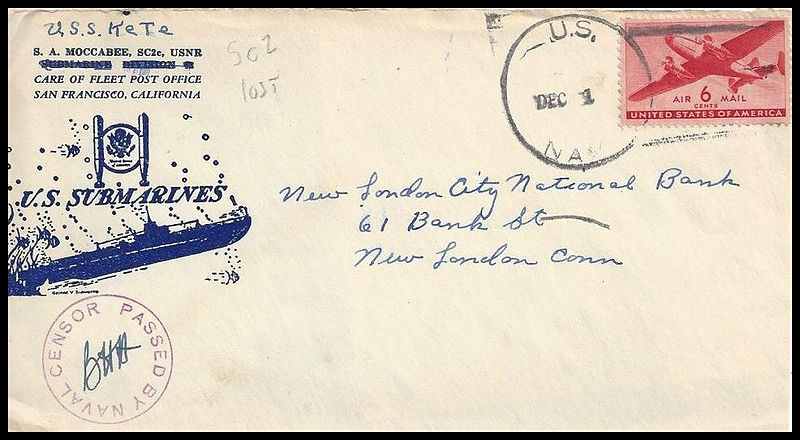 U.S.S. Kete
S. A. MOCCABEE, SC2c, USNR
SUBMARINE DIVISION
CARE OF FLEET POST OFFICE
SAN FRANCISCO, CALIFORNIA
502
lost
U.S.
DEC 1
NAV
AIR 6 MAIL
CENTS
UNITED STATES OF AMERICA
U.S. SUBMARINES
New London City National Bank
61 Bank St
New London Conn
PASSED BY NAVAL CENSOR
BHH